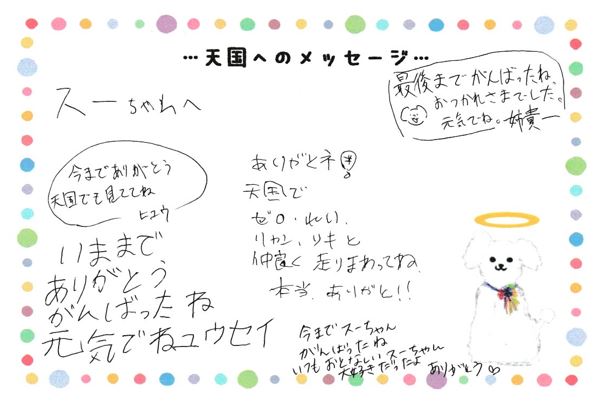 …天国へのメッセージ…
スーちゃんへ
最後までがんばったね、
おつかれさまでした。
元気でね。姉貴一
今までありがとう
天国でも見ててね
ヒュウ
ありがとネ!
天国で
ゼロ・れい、
リャン、リキと
仲良く走りまわってね
本当、ありがと!!
いままで、
ありがとう、
がんばったね
元気でねユウセイ
今までスーちゃん
がんばったね
いつもおとなしいスーちゃん
大好きだったよ ありがとう♡